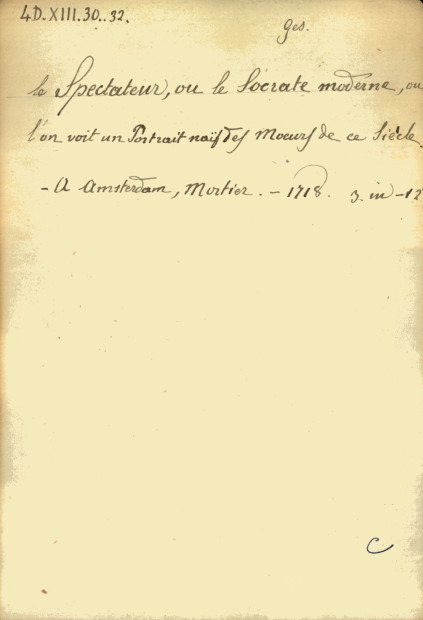 4D.XIII.30..32.
ges.
le Spectateur, ou le Socrate moderne, ou
l'on voit un Portrait naif des Moeurs de ce Siécle.
- A Amsterdam, Mortier. - 1718. 3. in -12
C